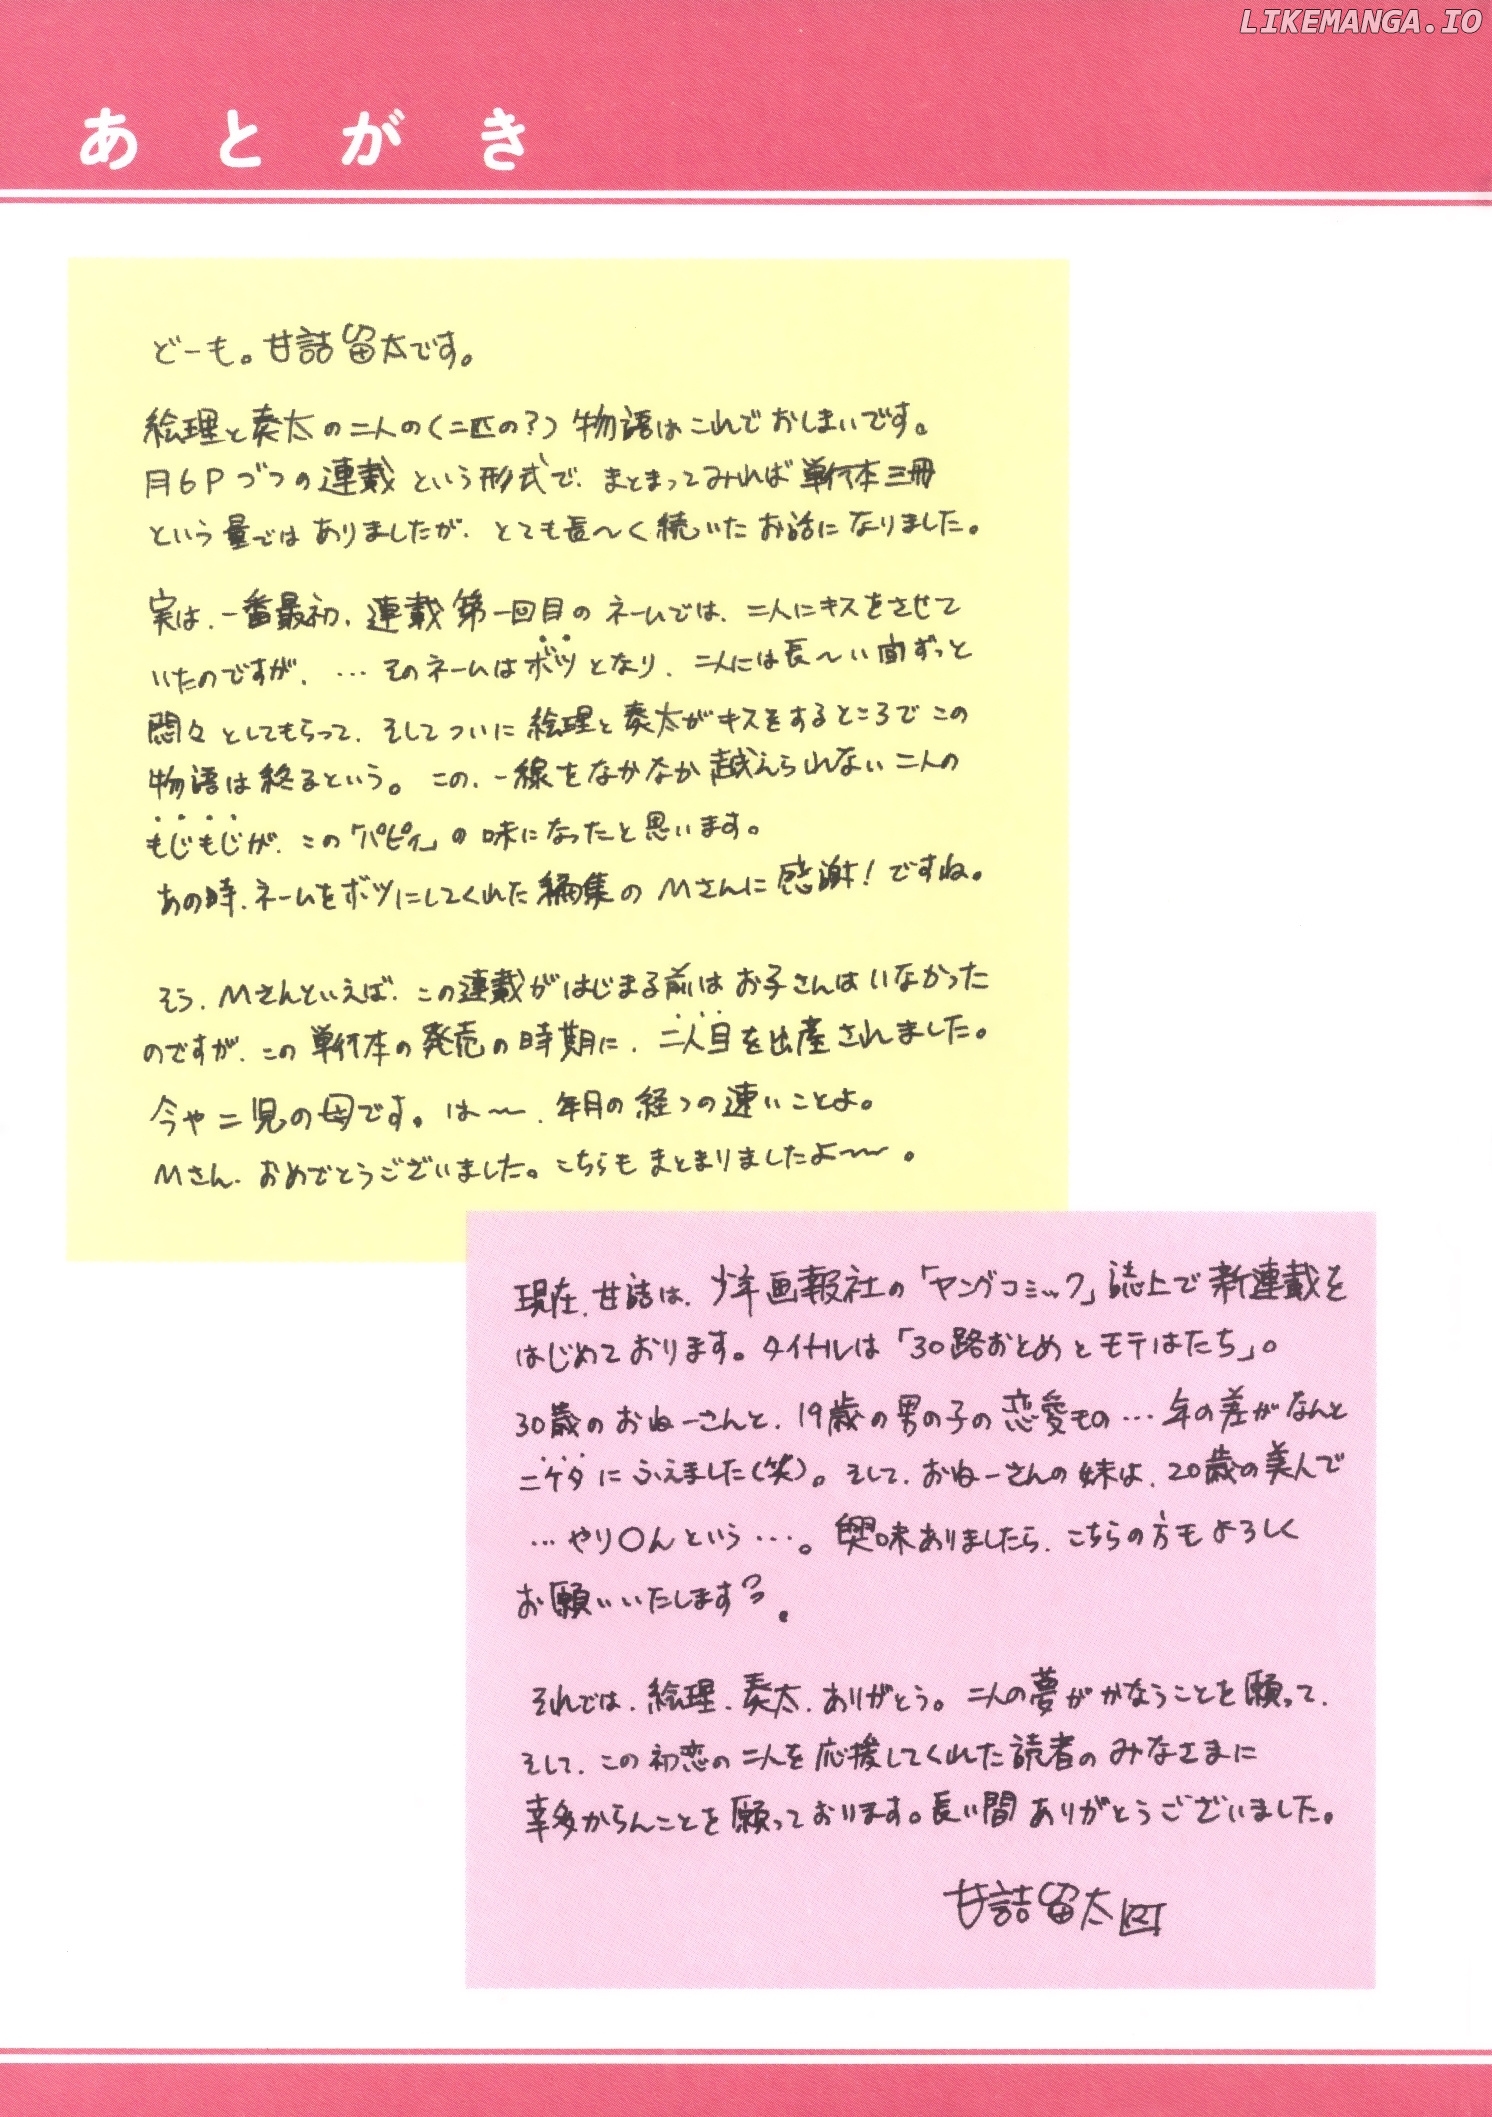 LIKEMANGA.IO
あとがき
どーも。甘詰留太です。
絵理と奏太の二人の(二匹の?)物語はこれでおしまいです。
月6Pづつの連載という形式で、まとまってみれば単行本三冊
という量ではありましたが、とても長〜く続いたお話になりました。
実は、一番最初、連載第一回目のネームでは、二人にキスをさせて
いたのですが、…そのネームはボツとなり、二人には長〜い間ずっと
悶々としてもらって、そしてついに絵理と奏太がキスをするところでこの
物語は終るという。この、一線をなかなか越えられない二人の
もじもじが、この「パピィ」の味になったと思います。
あの時、ネームをボツにしてくれた編集のMさんに感謝!ですね。
そう、Mさんといえば、この連載がはじまる前はお子さんはいなかった
のですが、この単行本の発売の時期に、二人目を出産されました。
今や二児の母です。は〜、年月の経つの速いことよ。
Mさん、おめでとうございました。こちらもまとまりましたよ〜。
現在、甘詰は、少年画報社の「ヤングコミック」誌上で新連載を
はじめております。タイトルは「30路おとめとモテはたち」。
30歳のおねーさんと、19歳の男の子の恋愛もの…年の差がなんと
二ケタにふえました(笑)。そして、おねーさんの妹は、20歳の美人で
…やり〇んという…。興味ありましたら、こちらの方もよろしく
お願いいたしますっ。
それでは、絵理、奏太、ありがとう。二人の夢がかなうことを願って、
そして、この初恋の二人を応援してくれた読者のみなさまに
幸多からんことを願っております。長い間ありがとうございました。
甘詰留太